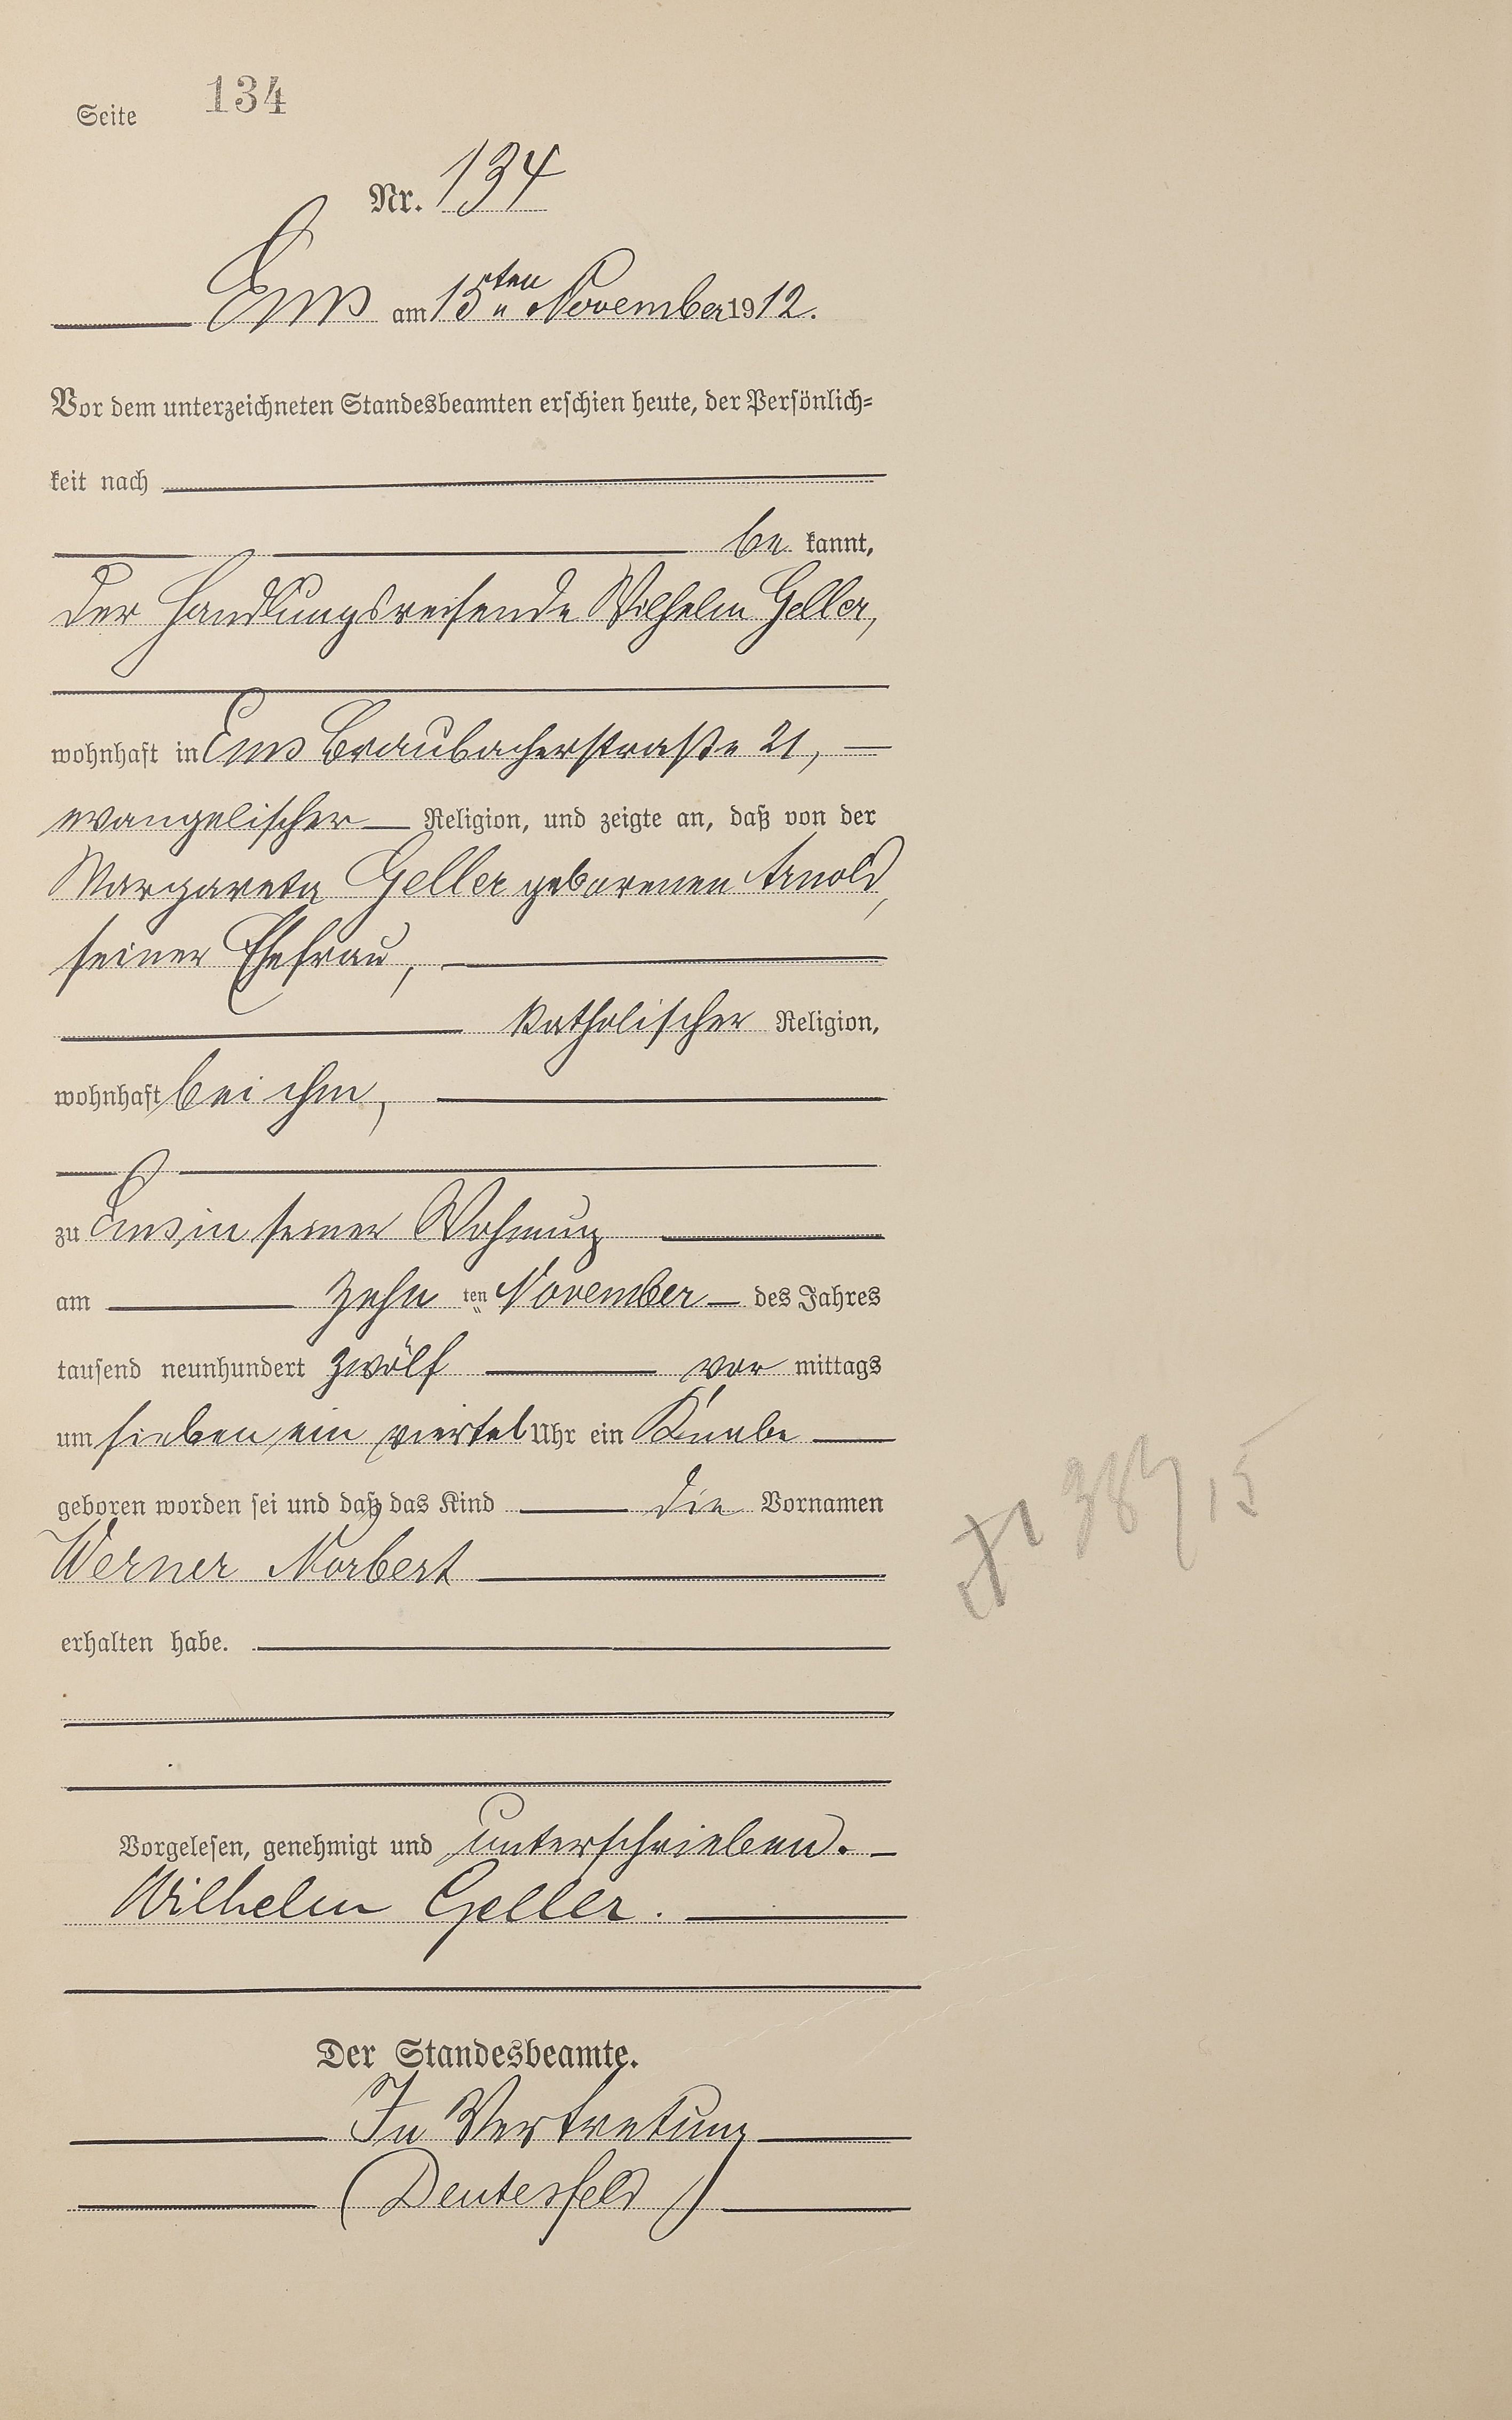 Seite 134
Nr. 134
Ems am 15ten November 1912.
Vor dem unterzeichneten Standesbeamten erschien heute, der Persönlich-
keit nach
be kannt,
der Handlungsreisende Wilhelm Geller,
wohnhaft in Ems Braubacherstraße 21,
evangelischer Religion, und zeigte an, daß von der
Margareta Geller geborenen Arnold,
seiner Ehefrau,
katholischer Religion,
wohnhaft bei ihm,
zu Ems, in seiner Wohnung
am zehn ten November des Jahres
tausend neunhundert zwölf vor mittags
um sieben ein viertel Uhr ein Knabe
geboren worden sei und daß das Kind die Vornamen
Werner Norbert
erhalten habe.
Vorgelesen, genehmigt und unterschrieben.
Wilhelm Geller.
Der Standesbeamte.
In Vertretung
(Deutesfeld)